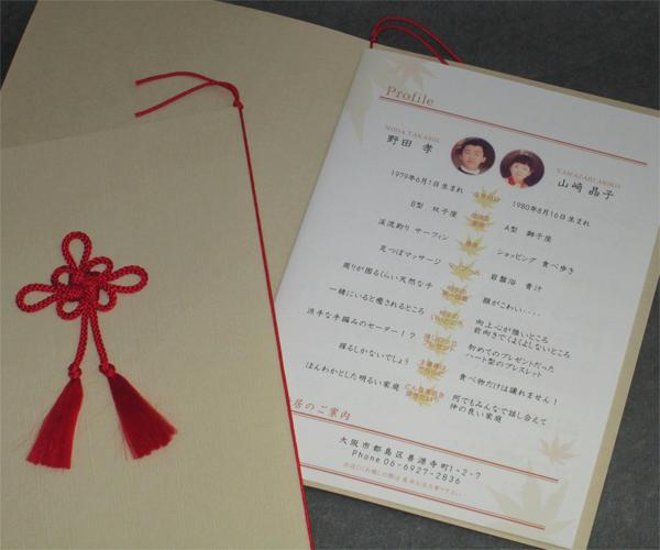 Profile
NODA TAKASHI
野田 孝
YAMAZAKI AKIKO
山崎 晶子
1979年6月1日生まれ
1980年8月16日生まれ
B型 双子座
A型 獅子座
渓流釣り サーフィン
ショッピング 食べ歩き
足つぼマッサージ
岩盤浴 青汁
周りが困るくらい天然な子
顔がこわい‥‥
一緒にいると癒されるところ
向上心が強いところ
前向きでくよくよしないところ
派手な手編みのセーター！？
初めてのプレゼントだった
ハート型のブレスレット
躍るしかないでしょう
食べ物だけは譲れません！
ほんわかとした明るい家庭
何でもみんなで話し合えて
仲の良い家庭
居のご案内
大阪市都島区善源寺町1-2-7
Phone 06-6927-2836